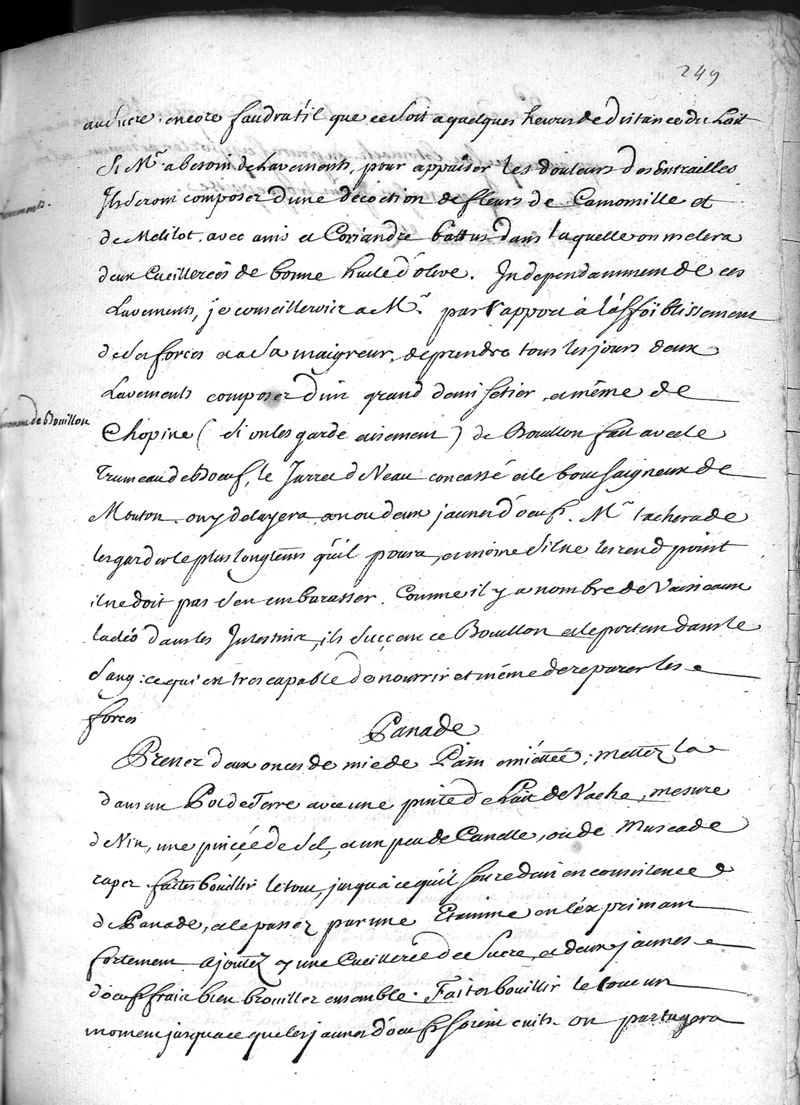 249
au Sucre, encore faudra t'il que ce soit a quelques heures de distance du Lait
Si Mr. a besoin de Lavements, pour appaiser les douleurs des Entrailles
Lavements.
Ils seront composez d'une decoction de fleurs de Camomille et
de Melilot, avec anis et Coriandre battus dans laquelle on melera
deux Cueillerées de bonne huile d'olive. Independamment de ces
Lavements, je conseillerois a Mr. par rapport à l'affoiblissement
de ses forces et a sa maigreur, de prendre tous les jours deux
Lavements composez d'un grand demi setier, a même de
de Bouillon
Chopine (si on les garde aisement) de Bouillon fait avec le
Trumeau de Boeuf, le Jarret de Veau concassé et le bout saigneux de
Mouton. on y delayera un ou deux jaunes d'oeufs. Mr. tachera de
les garder le plus longtems qu'il poura, et même s'il ne les rend point
il ne doit pas s'en embarasser. Comme il y a nombre de Vaisseaux
lactés dans les Intestins, ils sucçent ce Bouillon et le portent dans le
Sang: ce qui est tres capable de nourrir et même de reparer les
forces
Panade
Prenez deux onces de mie de Pain emiettée; mettez la
dans un Pot de Terre avec une pinte de Lait de Vache, mesure
de Vin, une pincée de Sel, et un peu de Canelle, ou de Muscade
rapez faites bouillir le tout, jusqu'a ce qu'il soit reduit en consistence
de Panade, et le passez par une Etamine en l'exprimant
fortement ajoutez y une Cueillerée de Sucre, et deux jaunes
d'oeufs frais bien brouillez ensemble. Faites bouillir le tout un
moment jusqu'a ce que les jaunes d'oeufs soient cuits. on partagera